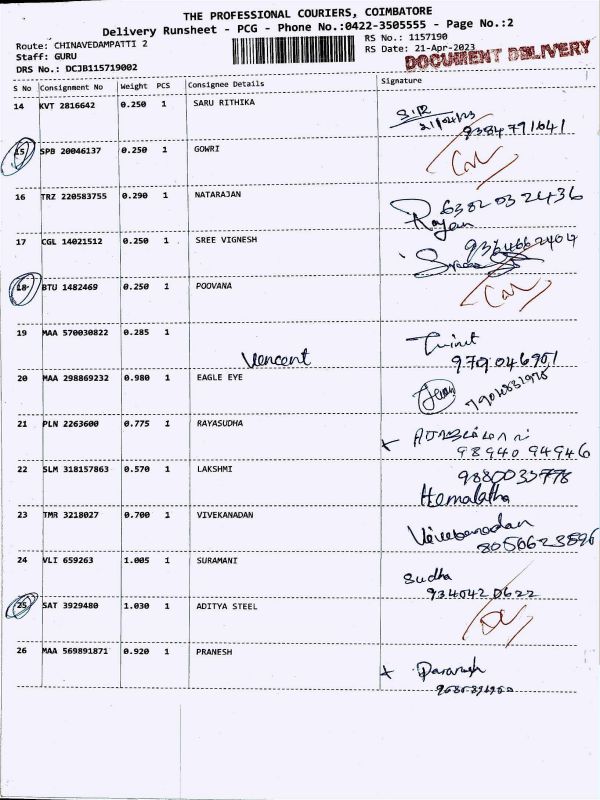 THE PROFESSIONAL COURIERS, COIMBATORE
Delivery Runsheet - PCG - Phone No.:0422-3505555 - Page No.:2
Route: CHINAVEDAMPATTI 2
RS No.: 1157190
Staff: GURU
RS Date: 21-Apr-2023
DOCUMENT DELIVERY
DRS No.: DCJB115719002
S No Consignment No Weight PCS Consignee Details Signature
14 KVT 2816642 0.250 1 SARU RITHIKA
21/04/23
9384791641
15 SPB 20046137 0.250 1 GOWRI
16 TRZ 220583755 0.290 1 NATARAJAN
6382032436
17 CGL 14021512 0.250 1 SREE VIGNESH
9364662404
18 BTU 1482469 0.250 1 POOVANA
19 MAA 570030822 0.285 1
Vencent
20 MAA 298869232 0.980 1 EAGLE EYE
21 PLN 2263600 0.775 1 RAYASUDHA
98940 94946
22 SLM 318157863 0.570 1 LAKSHMI
Hemalatha
23 TMR 3218027 0.700 1 VIVEKANADAN
8050623896
24 VLI 659263 1.005 1 SURAMANI
Sudha
9340420622
25 SAT 3929480 1.030 1 ADITYA STEEL
26 MAA 569891871 0.920 1 PRANESH